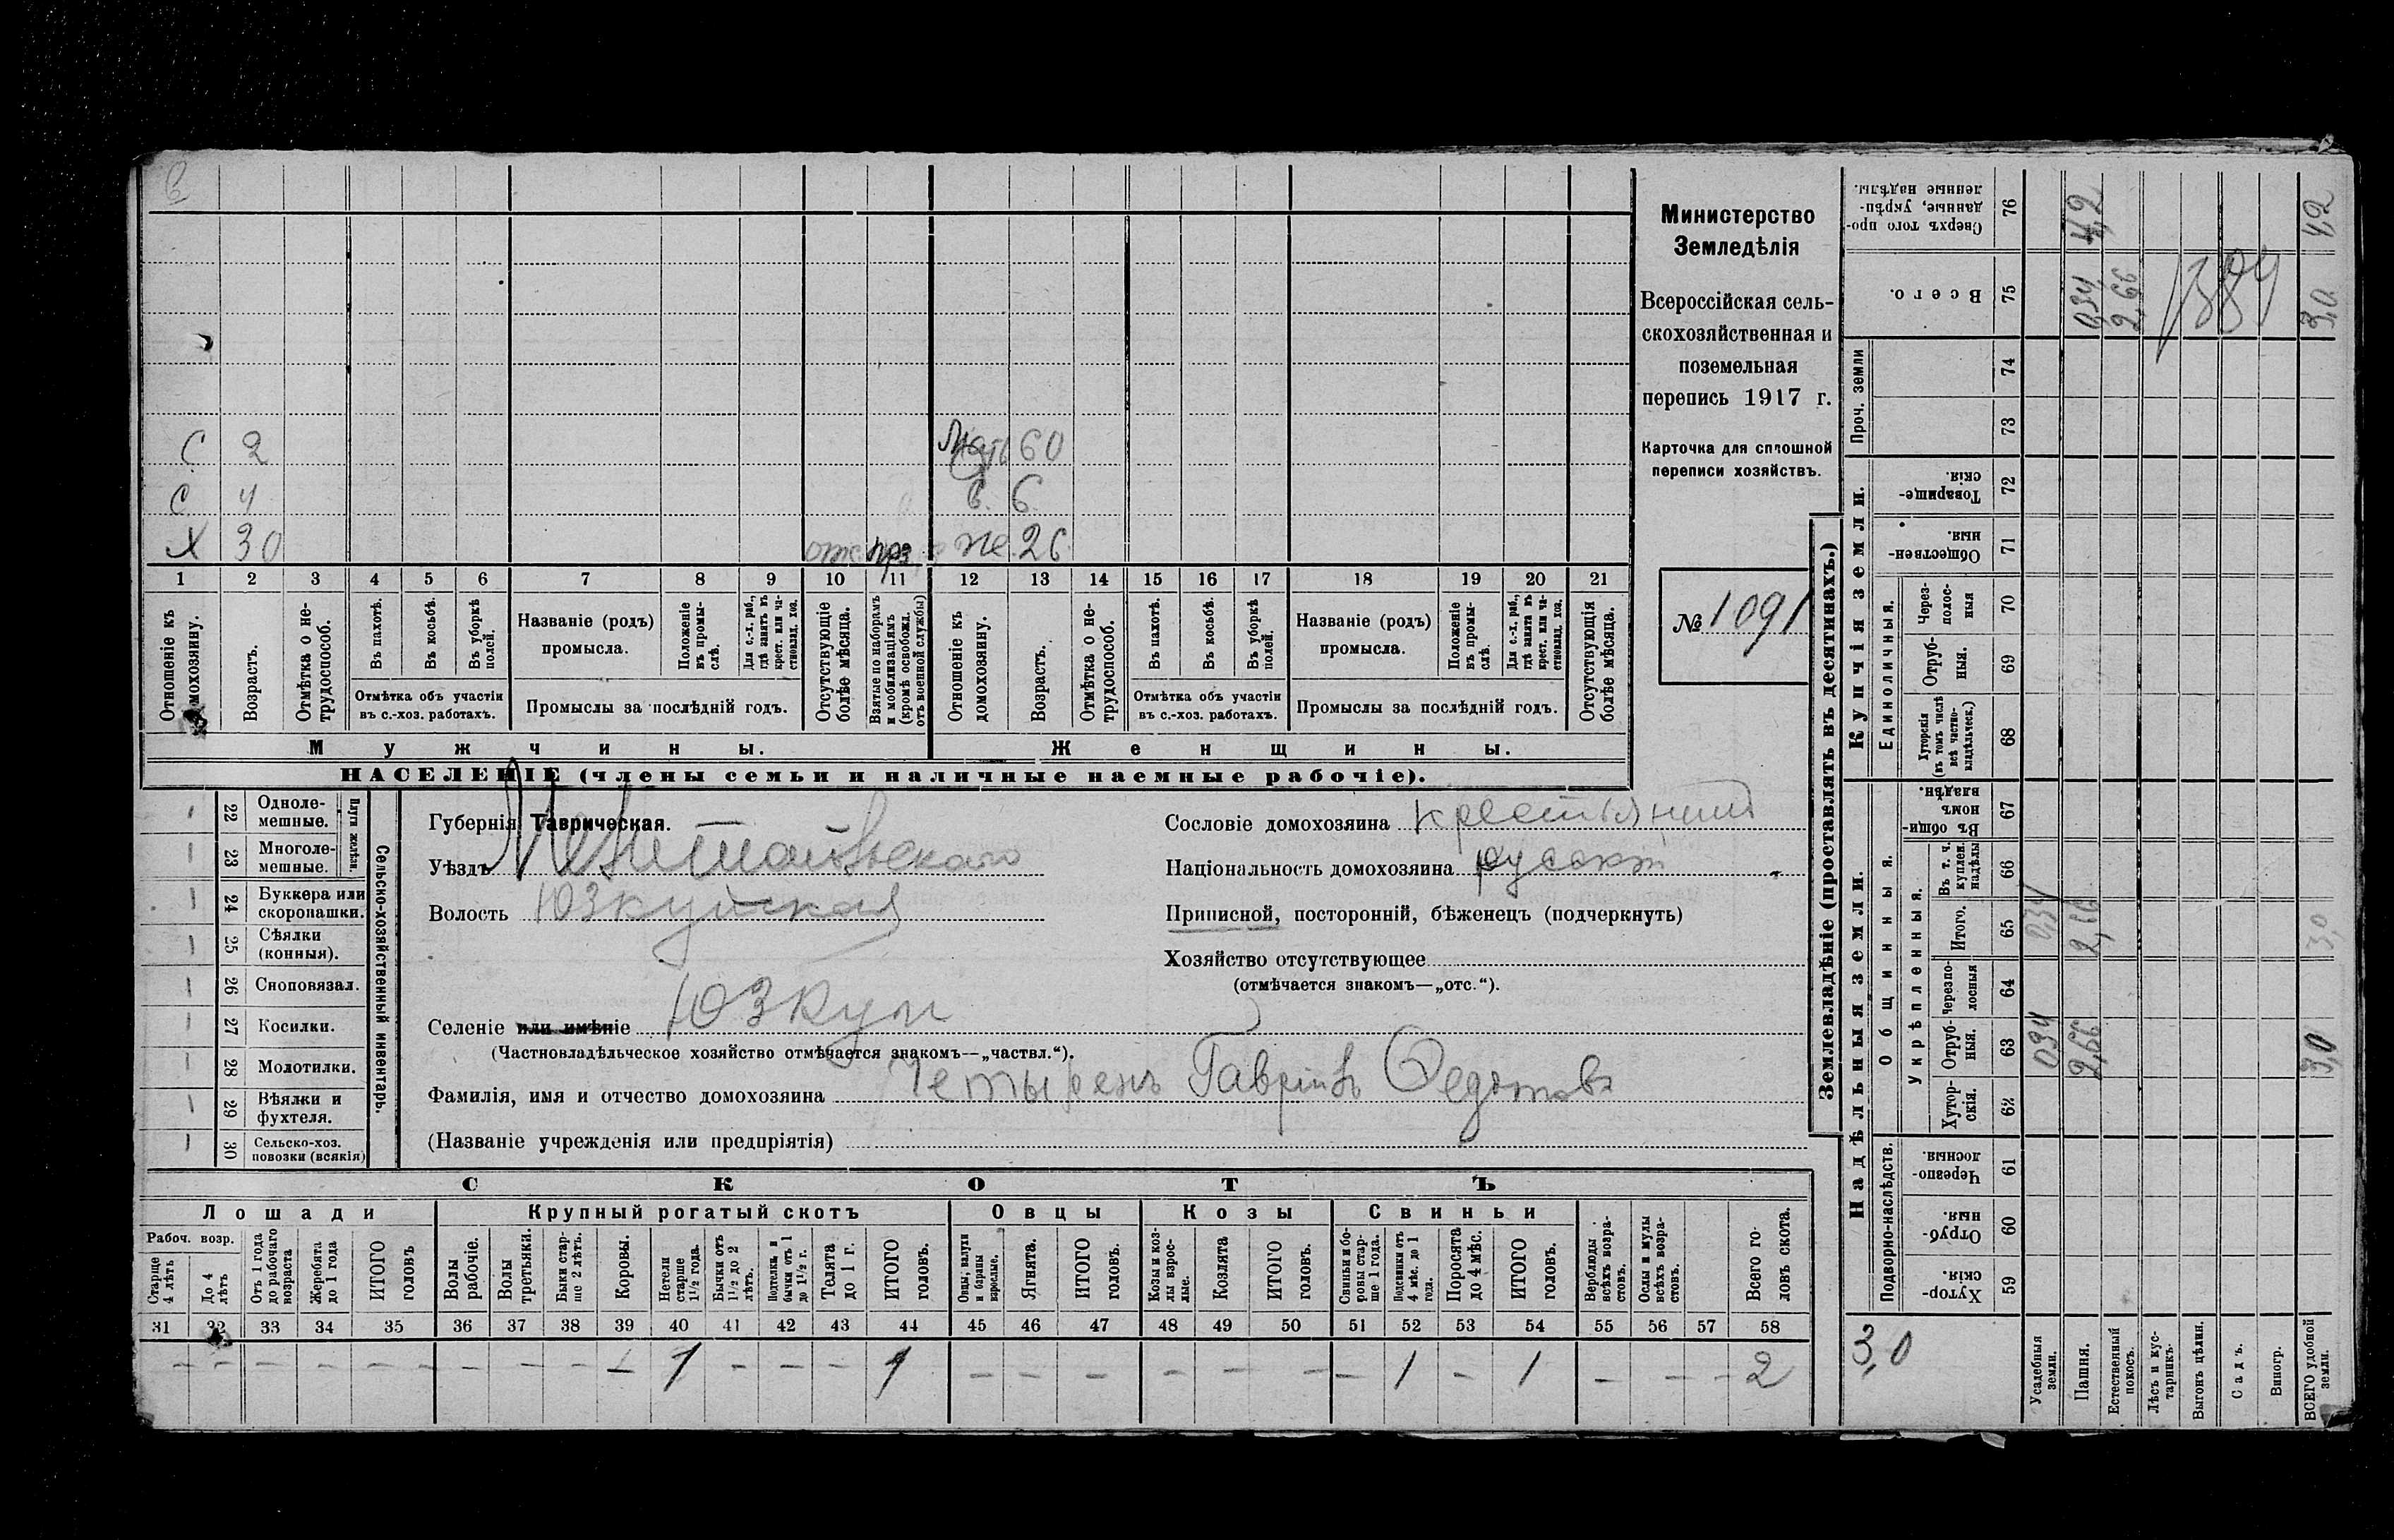 С 2 Мать 60
С 4 С. 6
Х 30 отс. прз. же. 26
1 2 3 4 5 6 7 8 9 10 11 12 13 14 15 16 17 18 19 20 21
Отношеніе къ домохозяину.
Возрастъ.
Отмѣтка о нетрудоспособ.
Въ пахотѣ.
Въ косьбѣ.
Въ уборкѣ полей.
Отмѣтка объ участіи
въ с.-хоз. работахъ.
Названіе (родъ)
промысла.
Положеніе въ промыслѣ.
Для с.-х. раб., гдѣ занятъ въ крест. или частновлад. хоз.
Промыслы за послѣдній годъ.
Отсутствующіе болѣе мѣсяца.
Взятые по наборамъ и мобилизаціямъ (кромѣ освобожд. отъ военной службы)
Отношеніе къ домохозяину.
Возрастъ.
Отмѣтка о нетрудоспособ.
Въ пахотѣ.
Въ косьбѣ.
Въ уборкѣ полей.
Отмѣтка объ участіи
въ с.-хоз. работахъ.
Названіе (родъ)
промысла.
Положеніе въ промыслѣ.
Для с.-х. раб., гдѣ занята въ крест. или частновлад. хоз.
Промыслы за послѣдній годъ.
Отсутствующія болѣе мѣсяца.
Мужчины. Женщины.
НАСЕЛЕНІЕ (члены семьи и наличные наемные рабочіе).
Министерство
Земледѣлія
Всероссійская сель-
скохозяйственная и
поземельная
перепись 1917 г.
Карточка для сплошной
переписи хозяйствъ.
№ 1091
22 Одноле-
мешные.
23 Многоле-
мешные.
Плуги желѣзн.
24 Буккера или
скоропашки.
25 Сѣялки
(конныя).
26 Сноповязал.
27 Косилки.
28 Молотилки.
29 Вѣялки и
фухтеля.
30 Сельско-хоз.
повозки (всякія)
Сельско-хозяйственный инвентарь.
Губернія Таврическая.
Уѣздъ Мелитопольскаго
Волость Юзкуйская
Селеніе или имѣніе Юзкуи
(Частновладѣльческое хозяйство отмѣчается знакомъ—„частвл.“).
Фамилія, имя и отчество домохозяина Четырень Гаврiилъ Федотовъ
(Названіе учрежденія или предпріятія)
Сословіе домохозяина крестьянинъ
Національность домохозяина русскій
Приписной, посторонній, бѣженецъ (подчеркнуть)
Хозяйство отсутствующее
(отмѣчается знакомъ—„отс.“).
СКОТЪ
Лошади Крупный рогатый скотъ Овцы Козы Свиньи
Рабоч. возр.
Старше 4 лѣтъ
До 4 лѣтъ
Отъ 1 года до рабочаго возраста
Жеребята до 1 года
ИТОГО головъ
Волы рабочіе.
Волы третьяки.
Быки старше 2 лѣтъ.
Коровы.
Нетели старше 1½ года.
Бычки отъ 1½ до 2 лѣтъ.
Подтелки и бычки отъ 1 до 1½ г.
Телята до 1 г.
ИТОГО головъ.
Овцы, валухи и бараны взрослые.
Ягнята.
ИТОГО головъ.
Козы и козлы взрослые.
Козлята
ИТОГО головъ.
Свиньи и боровы старше 1 года.
Подсвинки отъ 4 мѣс. до 1 года.
Поросята до 4 мѣс.
ИТОГО головъ.
Верблюды всѣхъ возрастовъ.
Ослы и мулы всѣхъ возрастовъ.
Всего головъ скота.
31 32 33 34 35 36 37 38 39 40 41 42 43 44 45 46 47 48 49 50 51 52 53 54 55 56 57 58
– – – – – – – – – 1 – – – 1 – – – – – – – 1 – 1 – – – 2
Землевладѣніе (проставлять въ десятинахъ.)
Купчія земли.
Надѣльныя земли.
Сверхъ того проданные, укрѣпленные надѣлы. 76 4,2 4,2
Всего. 75 0,34 2,66 3,0
1384
Проч. земли 74 73
Товарищескія 72
Общественныя. 71
Единоличныя.
Черезполосныя 70
Отрубныя. 69
Хуторскія (въ томъ числѣ всѣ частновладѣльческ.) 68
Общинныя.
Въ общинномъ владѣн. 67
Укрѣпленныя.
Въ т. ч. куплен. надѣлы 66
Итого. 65 0,34 2,66 3,0
Черезполосныя 64
Отрубныя. 63 0,34 2,66 3,0
Хуторскія. 62
Подворно-наслѣдств.
Черезполосныя. 61
Отрубныя. 60
Хуторскія. 59
3,0
Усадебныя земли.
Пашня.
Естественный покосъ.
Лѣсъ и кустарникъ.
Выгонъ цѣлин.
Садъ.
Виногр.
ВСЕГО удобной земли.